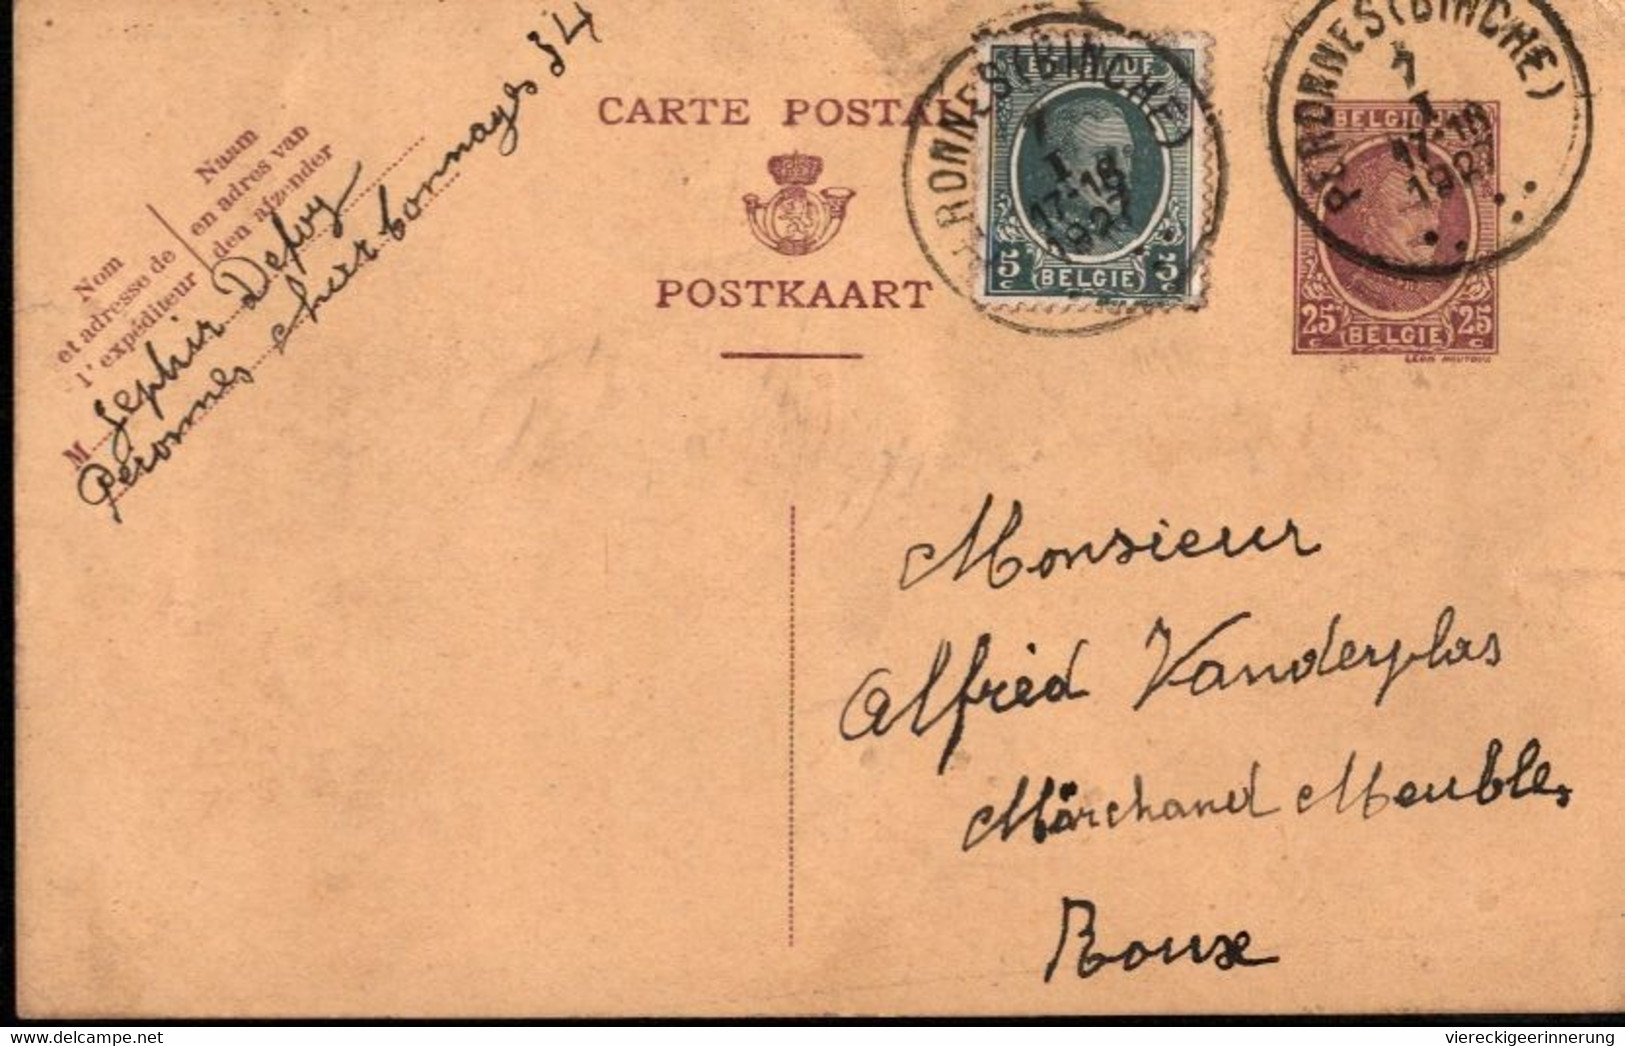 CARTE POSTAL
POSTKAART
Nom
et adresse de
l'expéditeur
Naam
en adres van
den afzender
M Zephir Defoy
Péronnes charbonnages 34
PÉRONNES (BINCHE)
7
I
17-18
1927
5c BELGIE 5c
PÉRONNES (BINCHE)
7
I
17-18
1927
BELGIQUE
25c BELGIE 25c
Monsieur
Alfred Vanderplas
Marchand Meubles
Roux
delcampe.net
viereckigeerinnerung